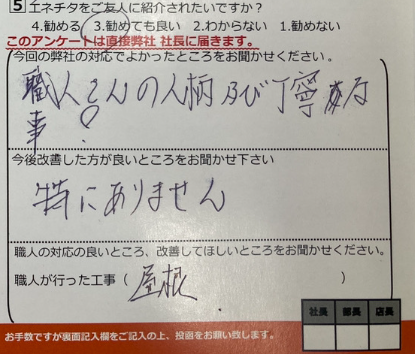 5 エネチタをご友人に紹介されたいですか？
4.勧める 3.勧めても良い 2.わからない 1.勧めない
このアンケートは直接弊社 社長に届きます。
今回の弊社の対応でよかったところをお聞かせください。
職人さんの人柄及び丁寧な
事。
今後改善した方が良いところをお聞かせ下さい
特にありません
職人の対応の良いところ、改善してほしいところをお聞かせください。
職人が行った工事（屋根 ）
社長 部長 店長
お手数ですが裏面記入欄をご記入の上、投函をお願い致します。